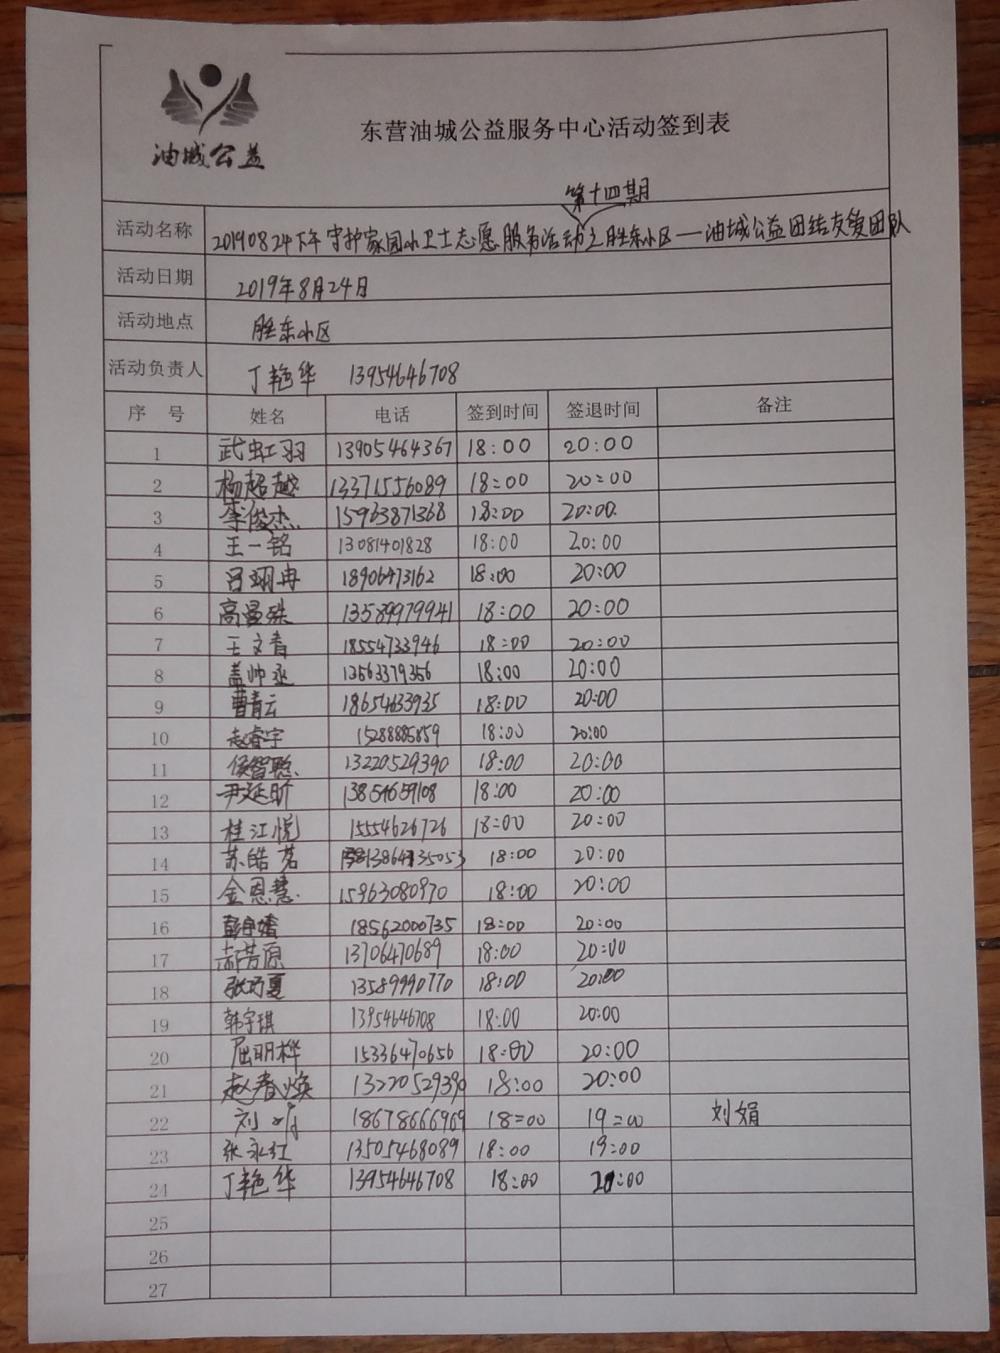 油城公益
东营油城公益服务中心活动签到表
第十四期
活动名称 20190824下午守护家园小卫士志愿服务活动之胜东小区—油城公益团结友爱团队
活动日期 2019年8月24日
活动地点 胜东小区
活动负责人 丁艳华 13954646708
序 号 姓名 电话 签到时间 签退时间 备注
1 武虹羽 13905464367 18:00 20:00
2 杨超越 13371556089 18:00 20:00
3 李俊杰 15963871368 18:00 20:00
4 王一铭 13081401828 18:00 20:00
5 吕翊冉 18906473162 18:00 20:00
6 高曼殊 13589979941 18:00 20:00
7 王文青 18554733946 18:00 20:00
8 盖帅丞 13563379356 18:00 20:00
9 曹青云 18654633935 18:00 20:00
10 赵睿宇 15288885859 18:00 20:00
11 侯智聪 13220529390 18:00 20:00
12 尹延昕 13854659108 18:00 20:00
13 桂江悦 15554626726 18:00 20:00
14 苏皓茗 18:00 20:00
15 金恩慧 15963080970 18:00 20:00
16 18562000735 18:00 20:00
17 郝芳原 13706470689 18:00 20:00
18 张巧夏 13589990770 18:00 20:00
19 韩宇琪 13954646708 18:00 20:00
20 屈明桦 15336470656 18:00 20:00
21 赵春焕 13220529390 18:00 20:00
22 刘 18678666969 18:00 19:00 刘娟
23 张永红 13505468089 18:00 19:00
24 丁艳华 13954646708 18:00 20:00
25
26
27